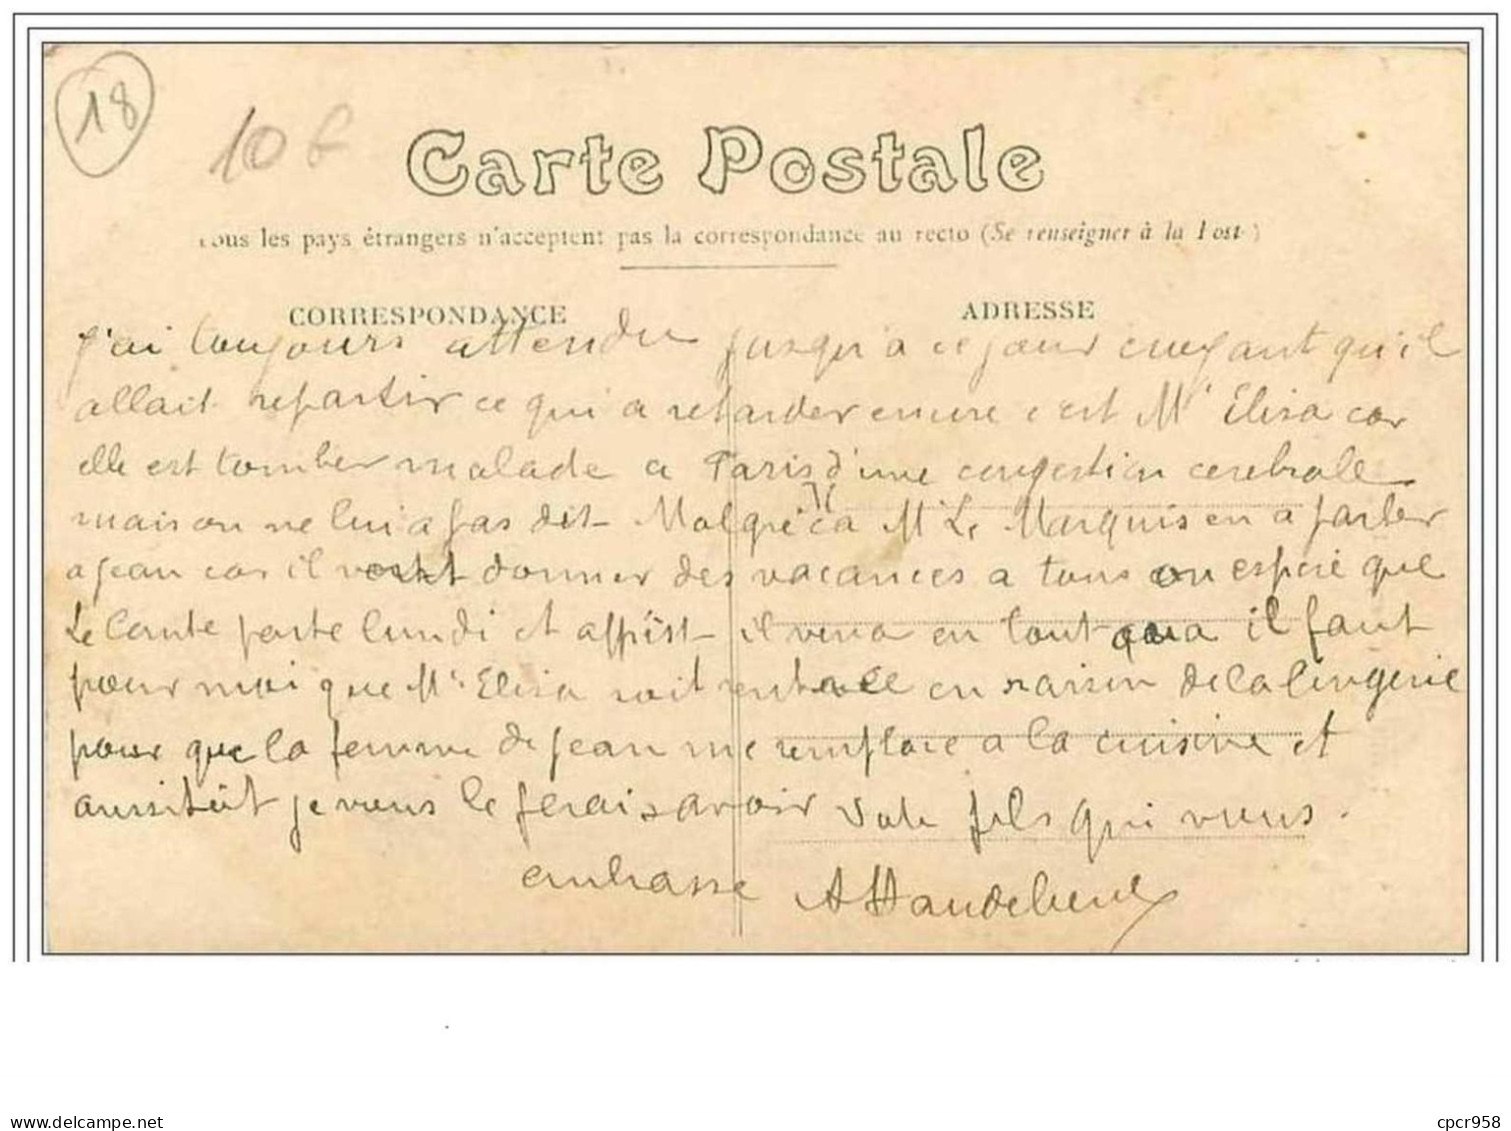 18
10 f
Carte Postale
Tous les pays étrangers n'acceptent pas la correspondance au recto (Se renseigner à la Post )
CORRESPONDANCE
ADRESSE
J'ai toujours attendu jusqu'a ce jour croyant qu'il
allait repartir ce qui a retarder encore c'est Me Elisa car
elle est tomber malade a Paris d'une congestion cerebrale
mais on ne lui a pas dit Malgré ca Mr Le Marquis en a parler
a Jean car il veut donner des vacances a tous on espere que
Le Comte parte lundi et il vera en tout il faut
pour moi que Me Elisa soit rentree en raison de la lingerie
pour que la femme de Jean me remplace a la cuisine et
aussitôt je vous le ferai savoir Vote fils qui vous
embrasse